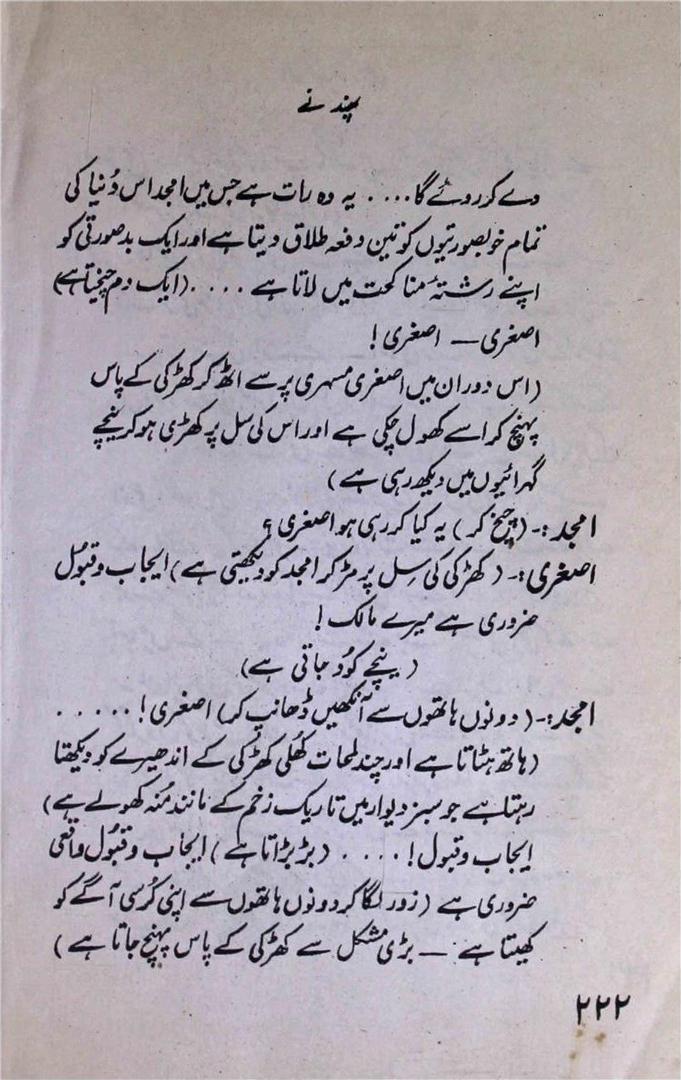 پھندنے
دے کر روئے گا.... یہ وہ رات ہے جس میں امجد اس دُنیا کی
تمام خوبصورتیوں کو تین دفعہ طلاق دیتا ہے اور ایک بدصورتی کو
اپنے رشتۂ مناکحت میں لاتا ہے .... (ایک دم چیختا ہے)
اصغری — اصغری !
(اس دوران میں اصغری مسہری پر سے اٹھ کر کھڑکی کے پاس
پہنچ کر اسے کھول چکی ہے اور اس کی سل پر کھڑی ہو کر نیچے
گہرائیوں میں دیکھ رہی ہے)
امجد :- (چیخ کر) یہ کیا کر رہی ہو اصغری ؟
اصغری :- (کھڑکی کی سِل پر مڑ کر امجد کو دیکھتی ہے) ایجاب و قبول
ضروری ہے میرے مالک !
(نیچے کُود جاتی ہے)
امجد :- (دونوں ہاتھوں سے آنکھیں ڈھانپ کر) اصغری ! .....
(ہاتھ ہٹاتا ہے اور چند لمحات کُھلی کھڑکی کے اندھیرے کو دیکھتا
رہتا ہے جو سبز دیوار میں تاریک زخم کے مانند مُنہ کھولے ہے)
ایجاب و قبول ! .... (بڑبڑاتا ہے) ایجاب و قبُول واقعی
ضروری ہے (زور لگا کر دونوں ہاتھوں سے اپنی کُرسی آگے کو
کھیتا ہے — بڑی مشکل سے کھڑکی کے پاس پہنچ جاتا ہے)
۲۲۲